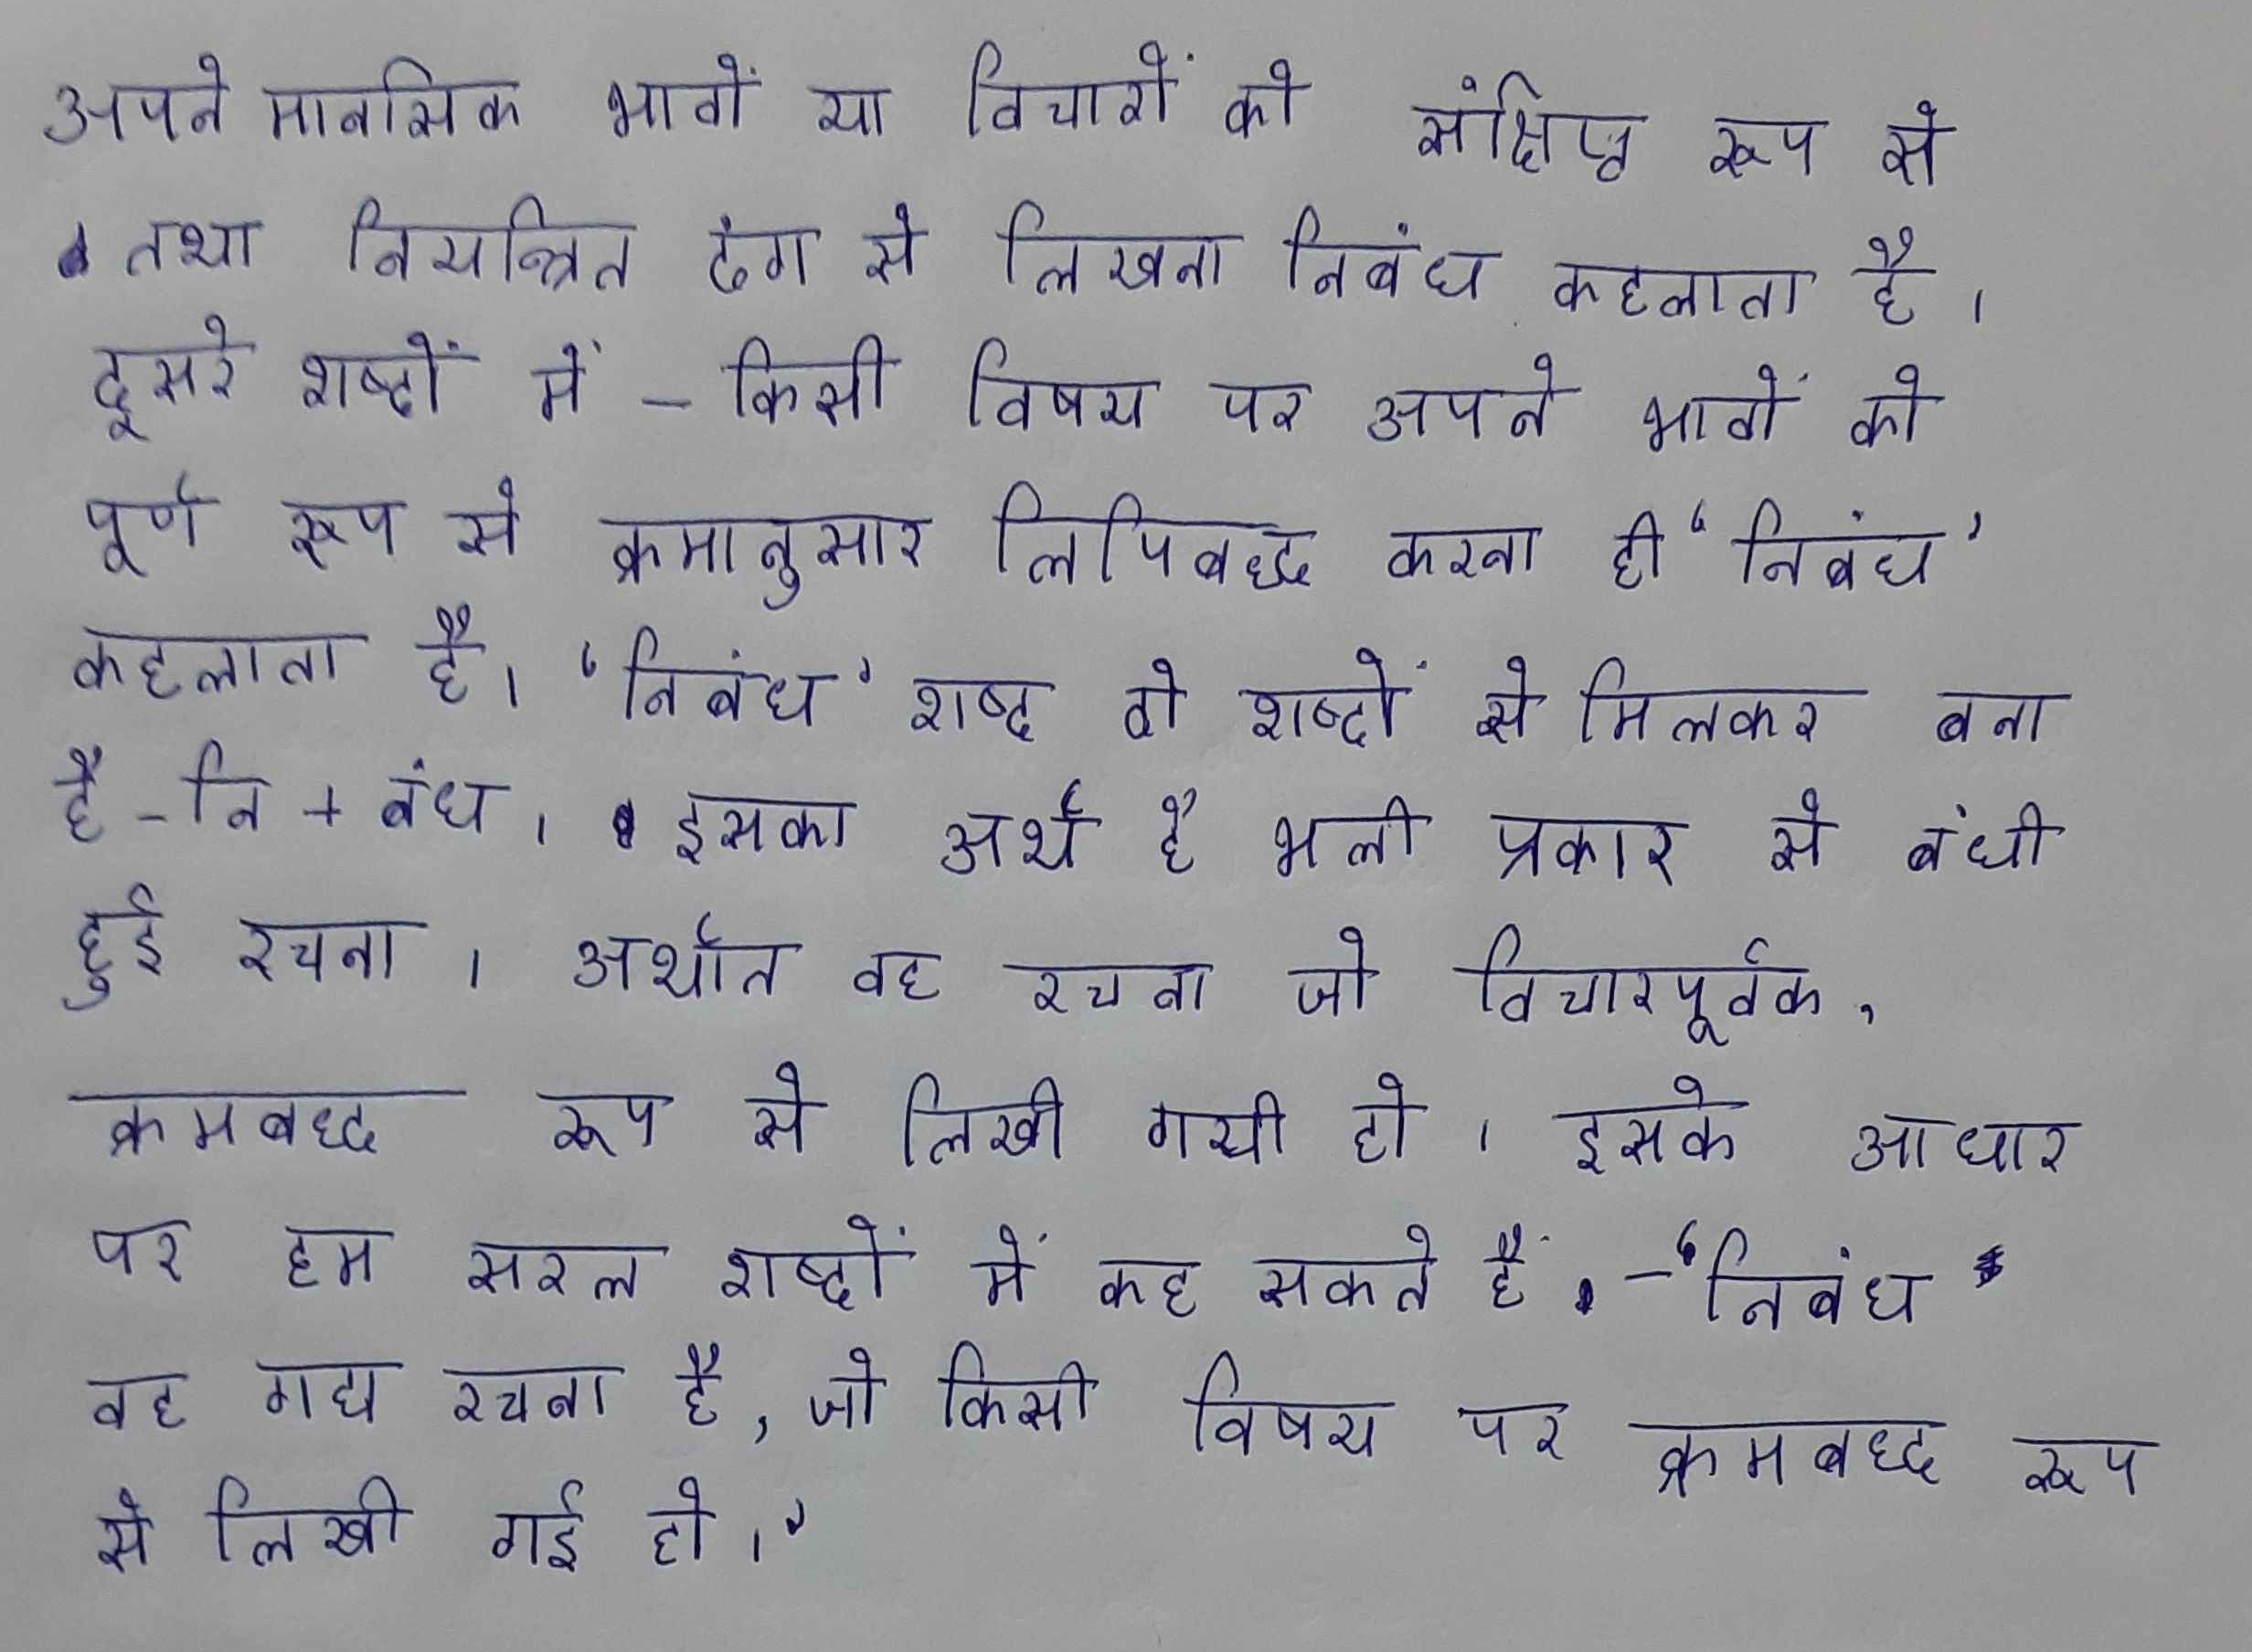 अपने मानसिक भावों या विचारों को संक्षिप्त रूप से
तथा नियन्त्रित ढंग से लिखना निबंध कहलाता है।
दूसरे शब्दों में - किसी विषय पर अपने भावों को
पूर्ण रूप से क्रमानुसार लिपिबद्ध करना ही 'निबंध'
कहलाता है। 'निबंध' शब्द दो शब्दों से मिलकर बना
है - नि + बंध। इसका अर्थ है भली प्रकार से बंधी
हुई रचना। अर्थात वह रचना जो विचारपूर्वक,
क्रमबद्ध रूप से लिखी गयी हो। इसके आधार
पर हम सरल शब्दों में कह सकते हैं - 'निबंध
वह गद्य रचना है, जो किसी विषय पर क्रमबद्ध रूप
से लिखी गई हो।'